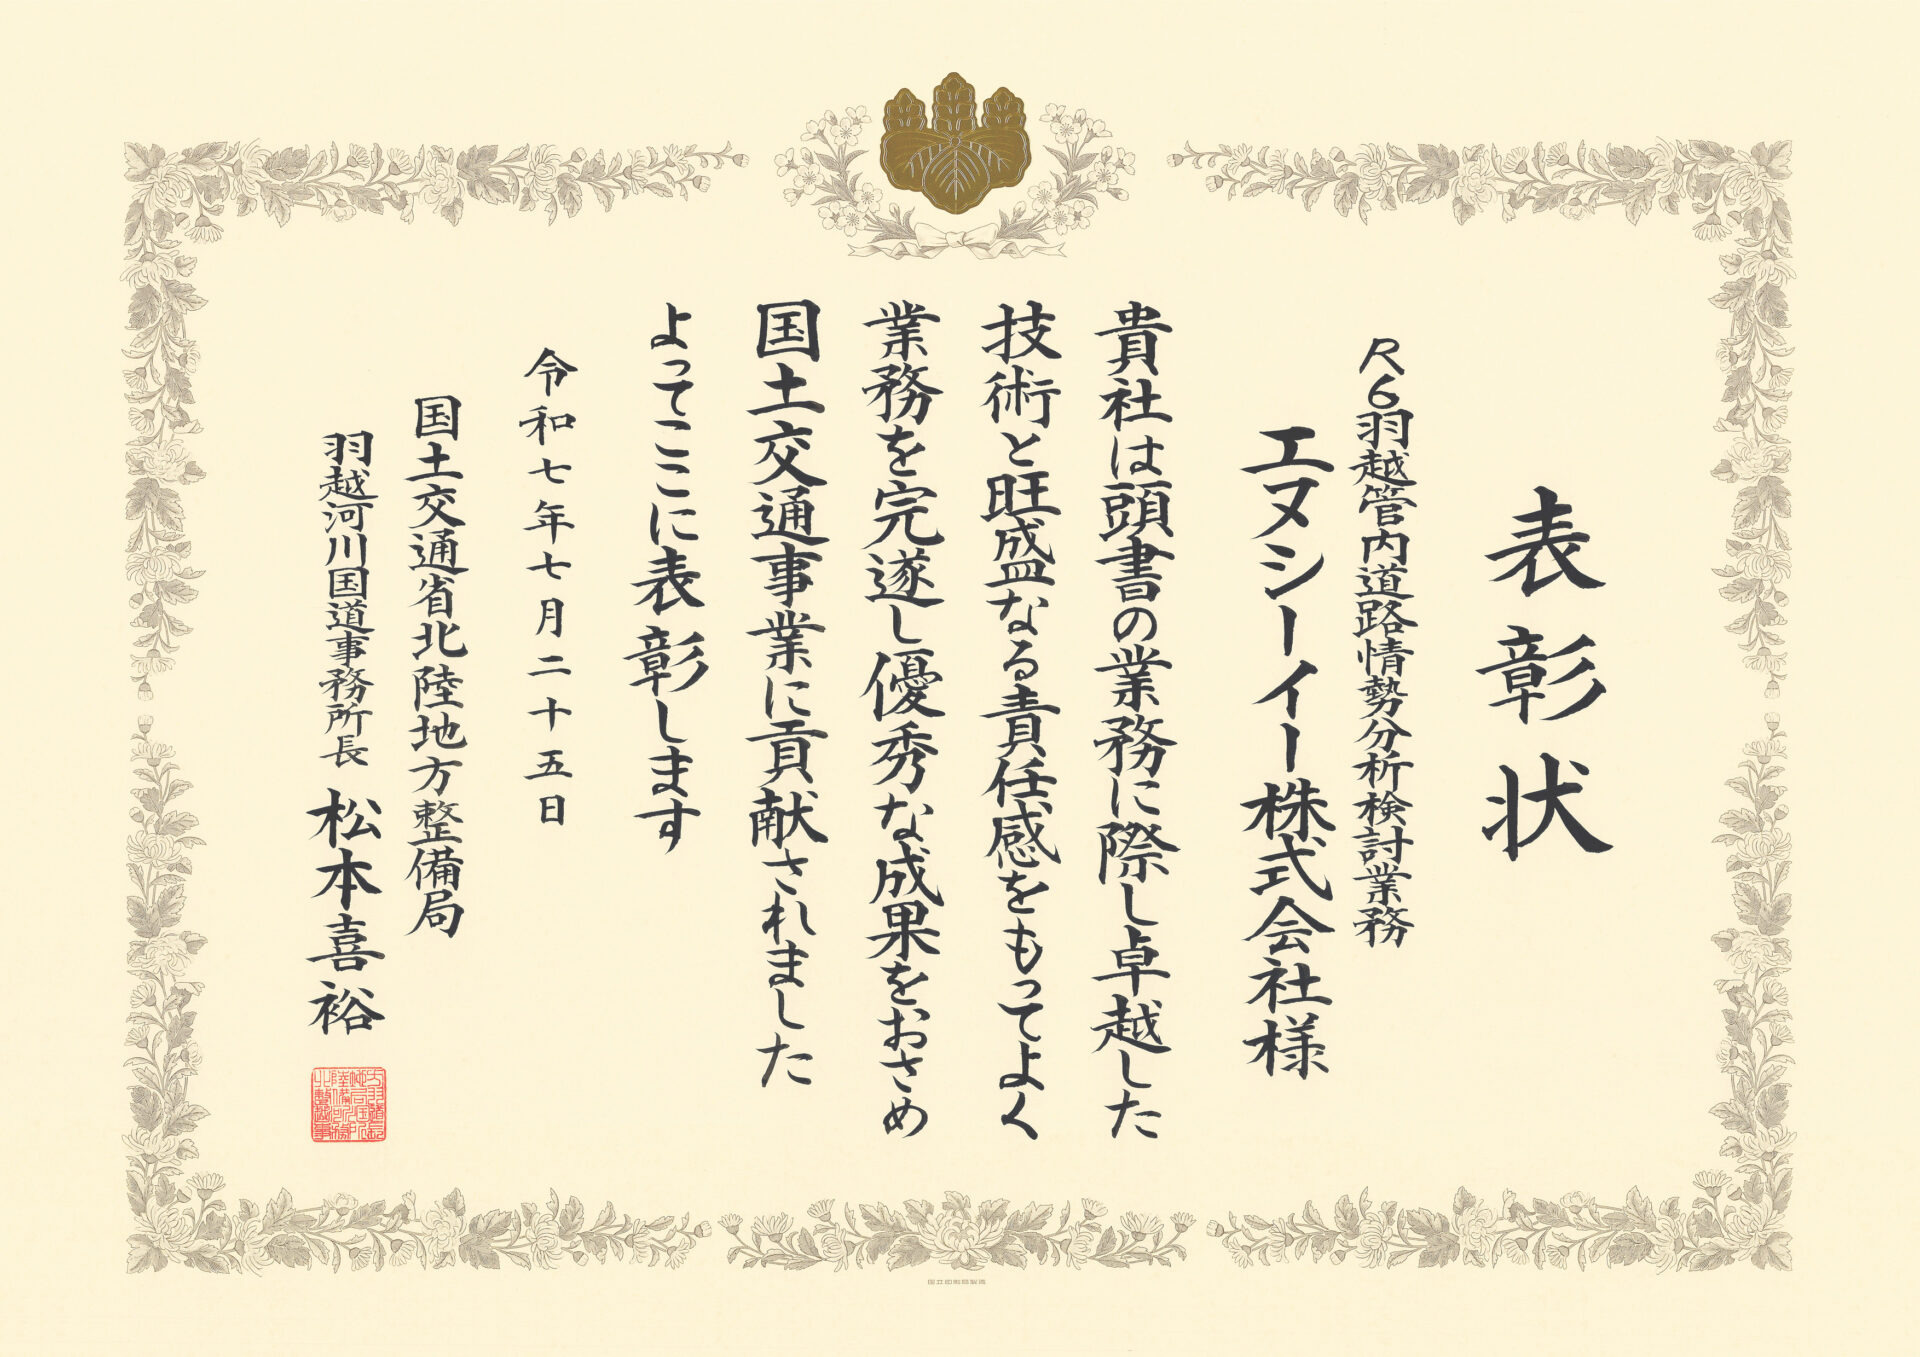 表彰状
R6羽越管内道路情勢分析検討業務
エヌシーイー株式会社様
貴社は頭書の業務に際し卓越した
技術と旺盛なる責任感をもってよく
業務を完遂し優秀な成果をおさめ
国土交通事業に貢献されました
よってここに表彰します
令和七年七月二十五日
国土交通省北陸地方整備局
羽越河川国道事務所長 松本喜裕
国立印刷局製造